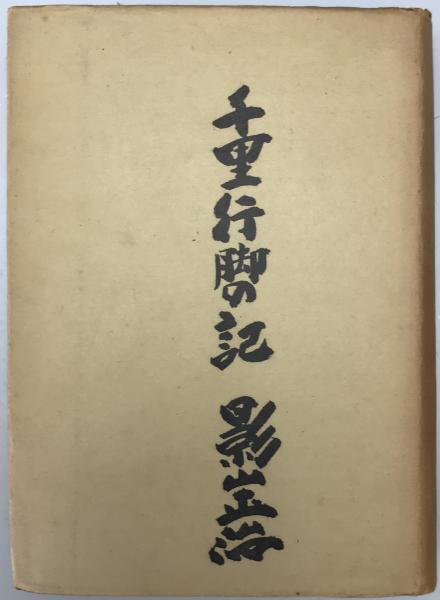 千里行脚の記 影山正治